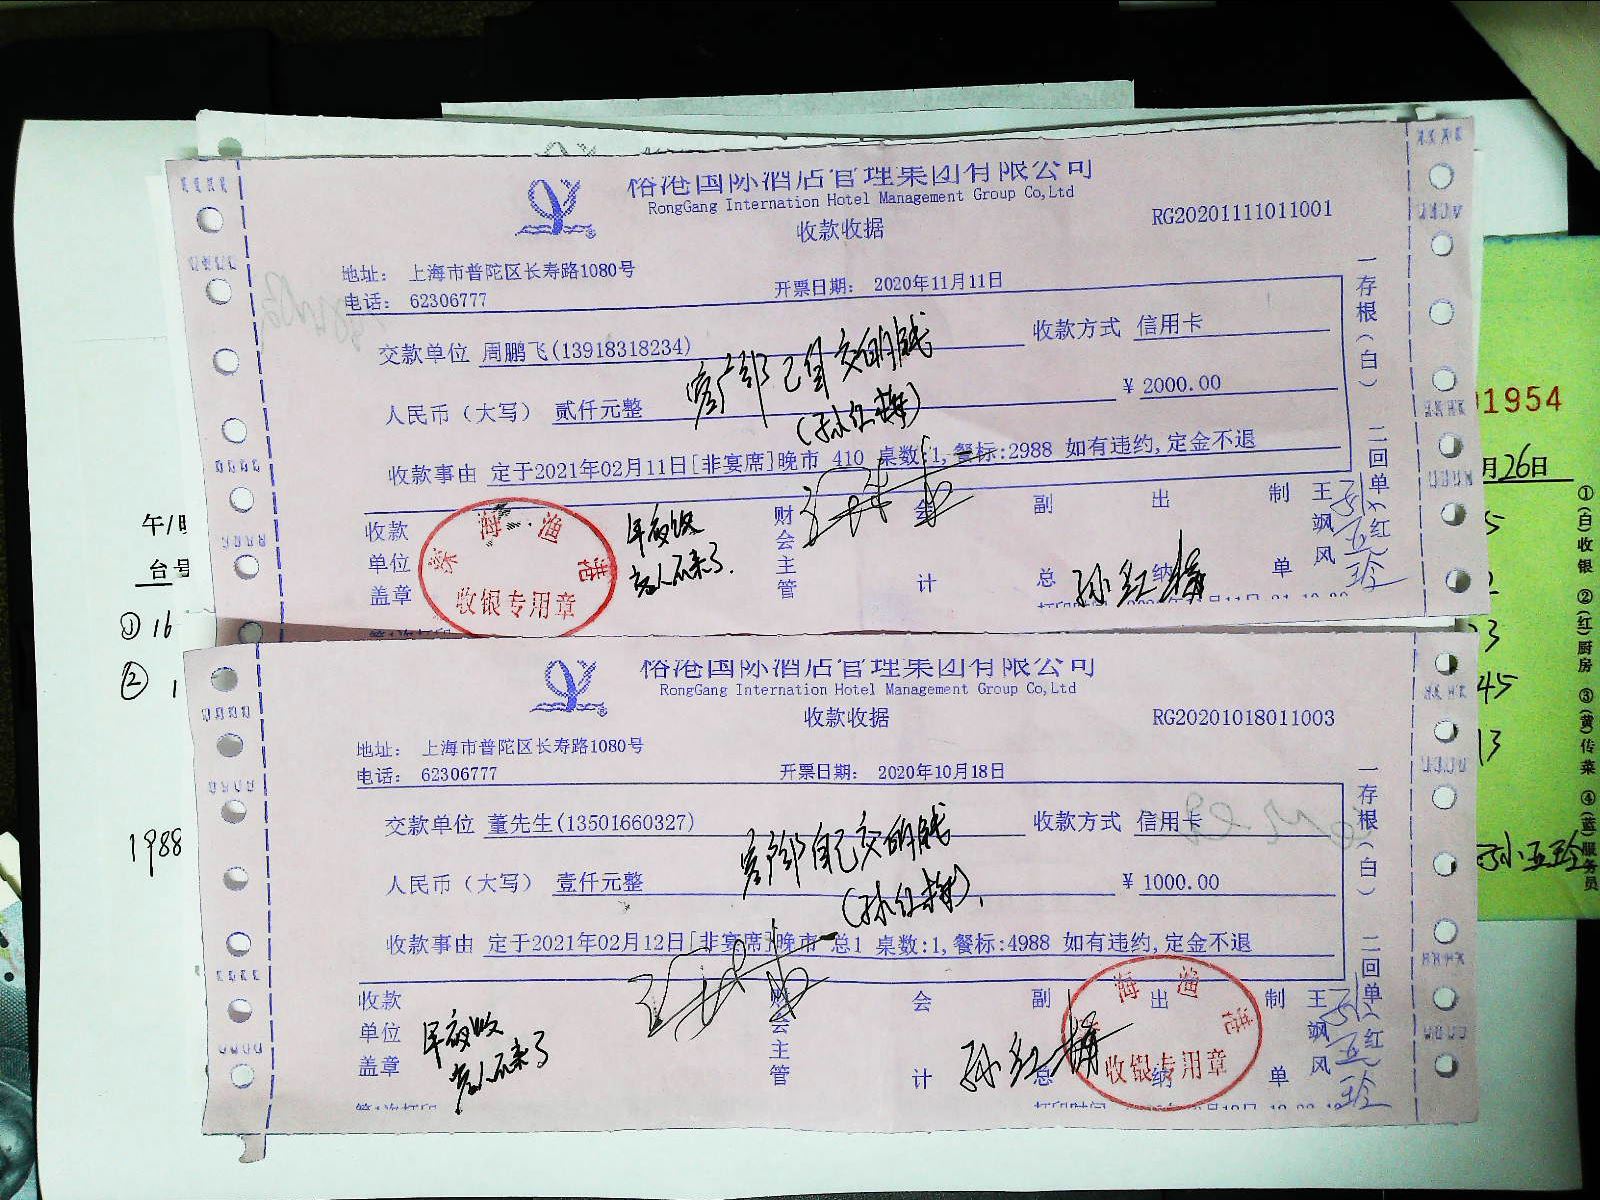 裕港国际酒店管理集团有限公司
RongGang Internation Hotel Management Group Co,Ltd
收款收据
RG20201111011001
地址： 上海市普陀区长寿路1080号
电话： 62306777
开票日期： 2020年11月11日
交款单位 周鹏飞(13918318234)
收款方式 信用卡
人民币（大写） 贰仟元整
¥ 2000.00
客户部已自交的钱
(孙红梅)
收款事由 定于2021年02月11日[非宴席]晚市 410 桌数:1,餐标:2988 如有违约,定金不退
收款单位盖章
海渔港
收银专用章
年夜饭
客人不来了.
财会主管
会计
副总
出纳
孙红梅
制单
王飒风
一存根（白） 二回单（红）
裕港国际酒店管理集团有限公司
RongGang Internation Hotel Management Group Co,Ltd
收款收据
RG20201018011003
地址： 上海市普陀区长寿路1080号
电话： 62306777
开票日期： 2020年10月18日
交款单位 董先生(13501660327)
收款方式 信用卡
人民币（大写） 壹仟元整
¥ 1000.00
客户部自己交的钱
(孙红梅)
收款事由 定于2021年02月12日[非宴席]晚市 总1 桌数:1,餐标:4988 如有违约,定金不退
收款单位盖章
年夜饭
客人不来了
财会主管
会计
副总
出纳
孙红梅
海渔港
收银专用章
制单
王飒风
一存根（白） 二回单（红）
午1
台号
① 16
② 1
1988
01954
月26日
45
13
①(白)收银 ②(红)厨房 ③(黄)传菜 ④(蓝)服务员